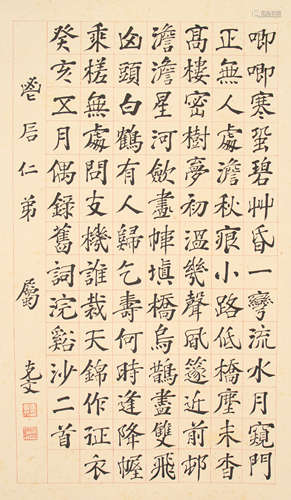 唧唧寒蛩碧艸昏一彎流水月窺門
正無人處澹秋痕小路低橋塵未杳
高樓密樹夢初溫幾聲風篴近前邨
澹澹星河斂盡幃塡橋烏鵲盡雙飛
囱頭白鶴有人歸乞壽何時逢降幄
乘槎無處問支機誰栽天錦作征衣
癸亥五月偶錄舊詞浣谿沙二首
仁弟 屬 克文